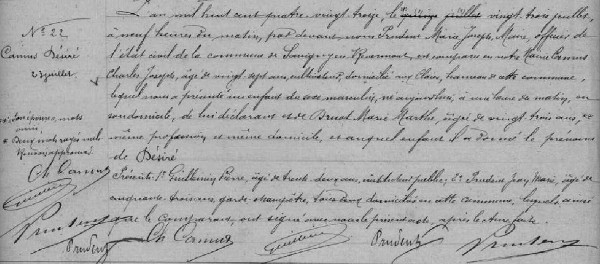 No 22
Camus Désiré
23 juillet
L'an mil huit cent quatre-vingt treize, le quinze juillet vingt trois juillet,
à neuf heures du matin, par devant nous Prudent Marie Joseph, Maire, officier de
l'état civil de la commune de est comparu en notre Mairie Camus
Charles Joseph, âgé de vingt sept ans, cultivateur, domicilié aux hameau de cette commune,
lequel nous a présenté un enfant du sexe masculin, né aujourd'hui, à une heure du matin, en
son domicile, de lui déclarant et de Marie Marthe, âgée de vingt trois ans, de
même profession et même domicile, et auquel enfant il a donné le prénom
de Désiré
Présents: 1º Guillemin Pierre, âgé de trente deux ans, instituteur public; 2º Prudent Jean Marie, âgé de
cinquante trois ans, garde-champêtre, tous deux domiciliés en cette commune, lesquels ainsi
que le comparant, ont signé avec nous le présent acte, après lecture faite.
mots
Deux mots rayés nuls
Ch Camus
Guillemin
Prudent
Prudent
Ch Camus
Guillemin
Prudent
Prudent